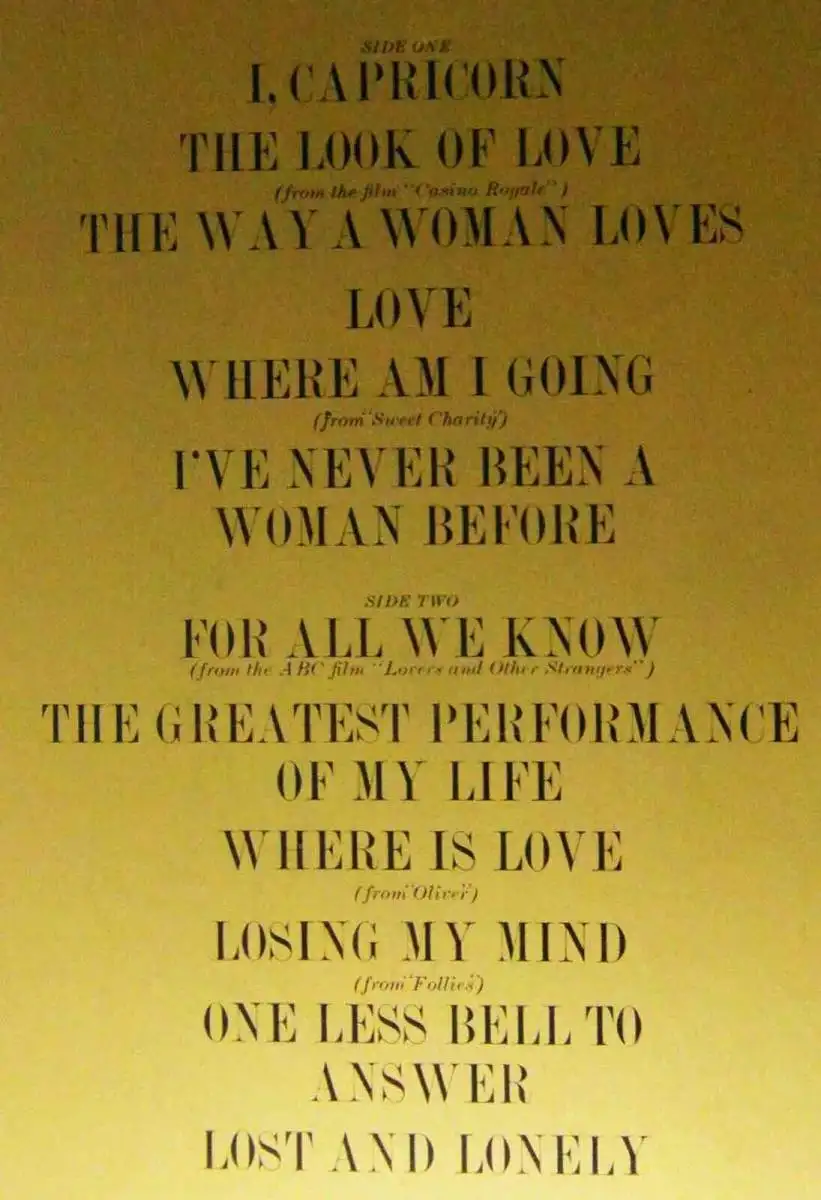 SIDE ONE
I, CAPRICORN
THE LOOK OF LOVE
(from the film "Casino Royale")
THE WAY A WOMAN LOVES
LOVE
WHERE AM I GOING
(from "Sweet Charity")
I'VE NEVER BEEN A
WOMAN BEFORE
SIDE TWO
FOR ALL WE KNOW
(from the ABC film "Lovers and Other Strangers")
THE GREATEST PERFORMANCE
OF MY LIFE
WHERE IS LOVE
(from "Oliver")
LOSING MY MIND
(from "Follies")
ONE LESS BELL TO
ANSWER
LOST AND LONELY